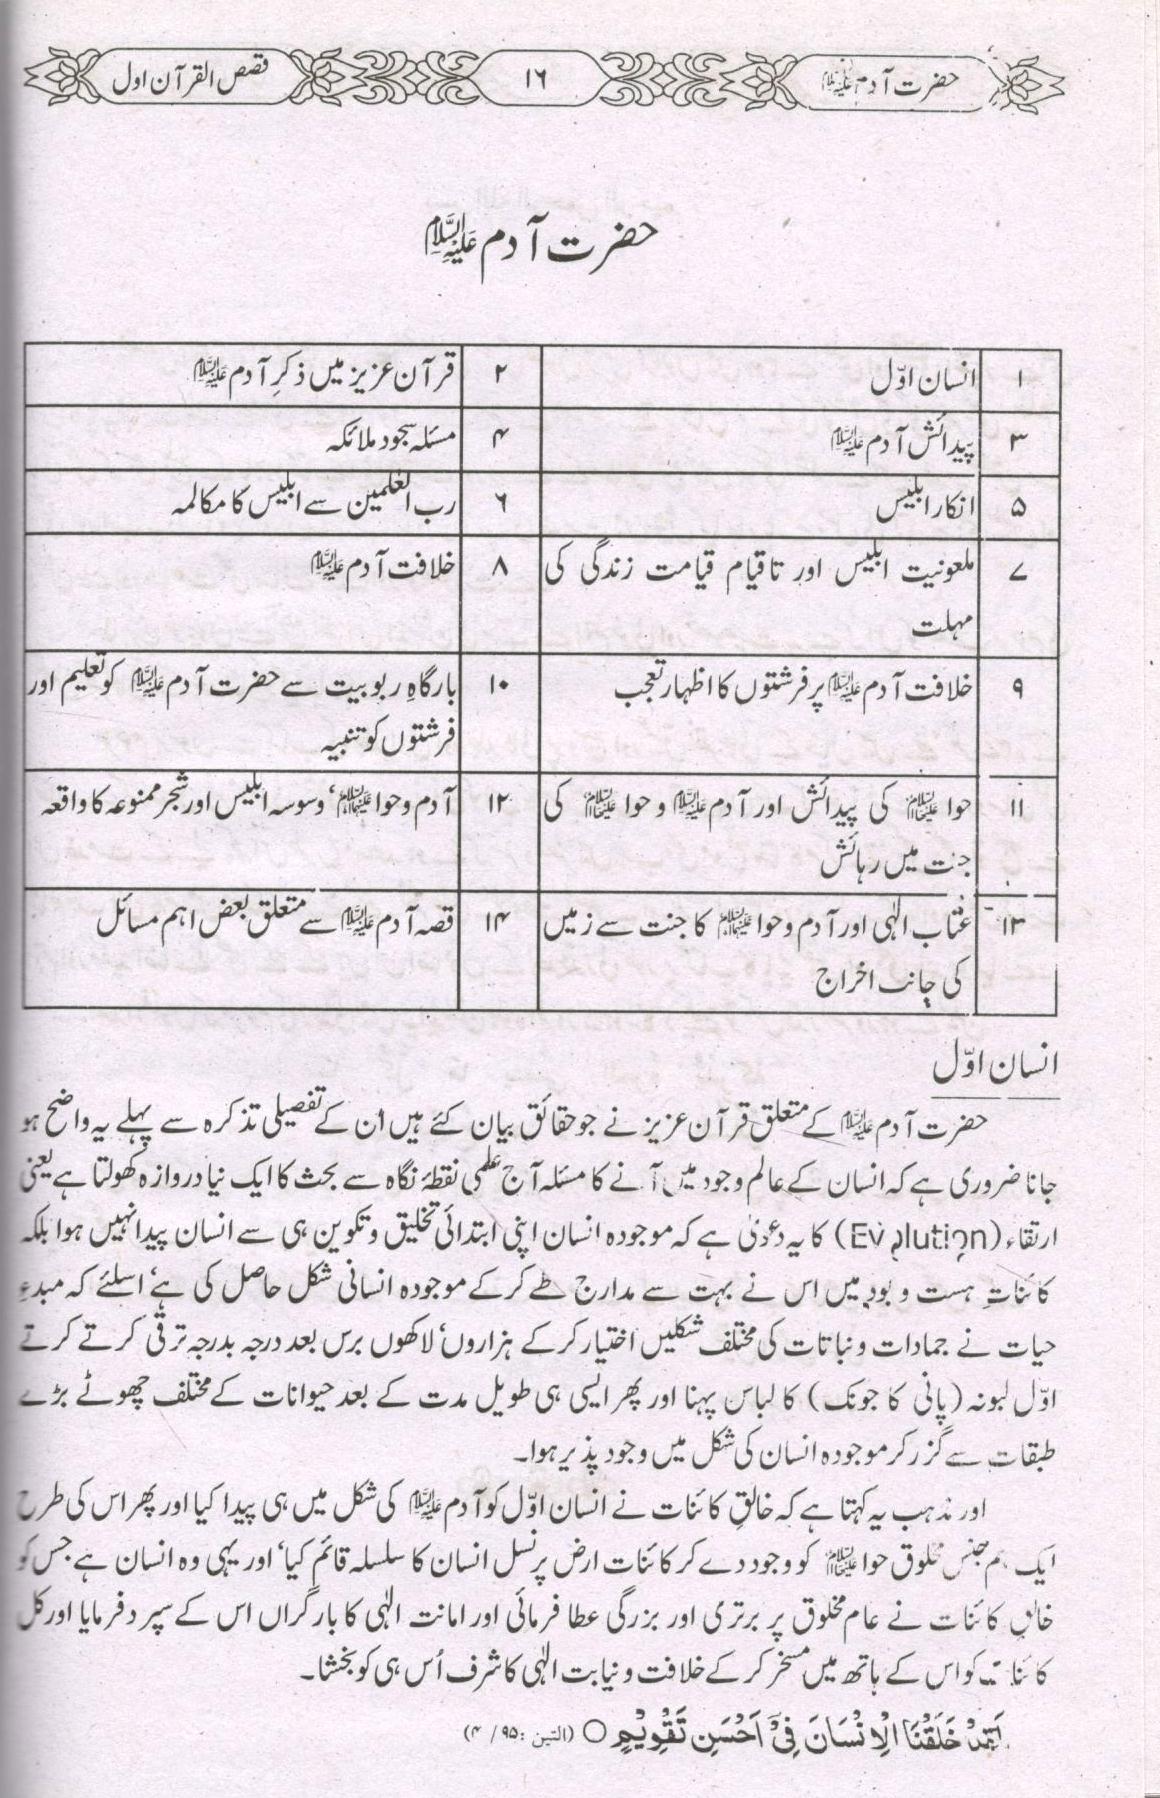 حضرت آدم علیہ السلام
۱۶
قصص القرآن اول
حضرت آدم علیہ السلام
۱ انسان اوّل ۲ قرآن عزیز میں ذکرِ آدم علیہ السلام
۳ پیدائش آدم علیہ السلام ۴ مسئلہ سجود ملائکہ
۵ انکار ابلیس ۶ رب العٰلمین سے ابلیس کا مکالمہ
۷ ملعونیت ابلیس اور تاقیام قیامت زندگی کی
مہلت
۸ خلافت آدم علیہ السلام
۹ خلافت آدم علیہ السلام پر فرشتوں کا اظہار تعجب
۱۰ بارگاہِ ربوبیت سے حضرت آدم علیہ السلام کو تعلیم اور
فرشتوں کو تنبیہ
۱۱ حوا علیہا السلام کی پیدائش اور آدم علیہ السلام و حوا علیہا السلام کی
جنت میں رہائش
۱۲ آدم و حوا علیہما السلام، وسوسہ ابلیس اور شجر ممنوعہ کا واقعہ
۱۳ عتاب الٰہی اور آدم و حوا علیہما السلام کا جنت سے زمین
کی جانب اخراج
۱۴ قصہ آدم علیہ السلام سے متعلق بعض اہم مسائل
انسان اوّل
حضرت آدم علیہ السلام کے متعلق قرآن عزیز نے جو حقائق بیان کئے ہیں اُن کے تفصیلی تذکرہ سے پہلے یہ واضح ہو
جانا ضروری ہے کہ انسان کے عالم وجود میں آنے کا مسئلہ آج علمی نقطۂ نگاہ سے بحث کا ایک نیا دروازہ کھولتا ہے یعنی
ارتقاء (Evolution) کا یہ دعویٰ ہے کہ موجودہ انسان اپنی ابتدائی تخلیق و تکوین ہی سے انسان پیدا نہیں ہوا بلکہ
کائناتِ ہست و بود میں اس نے بہت سے مدارج طے کر کے موجودہ انسانی شکل حاصل کی ہے، اسلئے کہ مبدءِ
حیات نے جمادات و نباتات کی مختلف شکلیں اختیار کر کے ہزاروں، لاکھوں برس بعد درجہ بدرجہ ترقی کرتے کرتے
اوّل لبونہ (پانی کا جونک) کا لباس پہنا اور پھر ایسی ہی طویل مدت کے بعد حیوانات کے مختلف چھوٹے بڑے
طبقات سے گزر کر موجودہ انسان کی شکل میں وجود پذیر ہوا۔
اور مذہب یہ کہتا ہے کہ خالقِ کائنات نے انسان اوّل کو آدم علیہ السلام کی شکل میں ہی پیدا کیا اور پھر اس کی طرح
ایک ہم جنس مخلوق حوا علیہا السلام کو وجود دے کر کائنات ارض پر نسل انسان کا سلسلہ قائم کیا، اور یہی وہ انسان ہے جس کو
خالق کائنات نے عام مخلوق پر برتری اور بزرگی عطا فرمائی اور امانت الٰہی کا بار گراں اس کے سپرد فرمایا اور کل
کائنات کو اس کے ہاتھ میں مسخر کر کے خلافت و نیابت الٰہی کا شرف اُس ہی کو بخشا۔
لَقَدْ خَلَقْنَا الْاِنْسَانَ فِیْٓ اَحْسَنِ تَقْوِیْمٍ ○ (التین: ۹۵/ ۴)